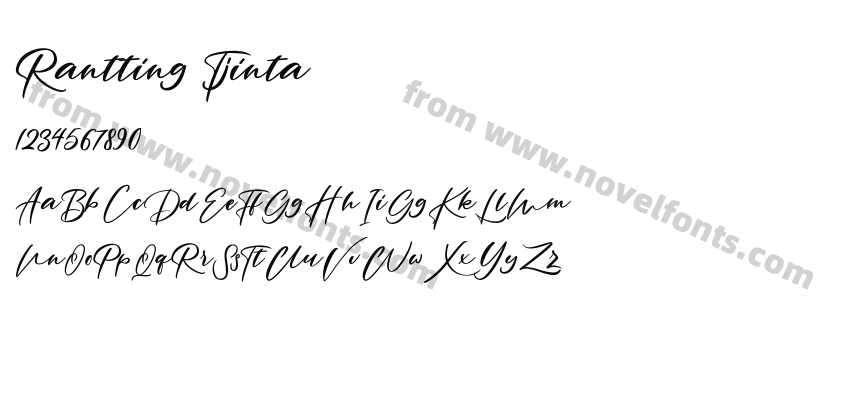 Rantting Tjinta
1234567890
AaBbCcDdEeFfGgHhIiGgKkLlMm
NnOoPpQqRrSsTtUuVvWwXxYyZz
from www.novelfonts.com
from www.novelfonts.com